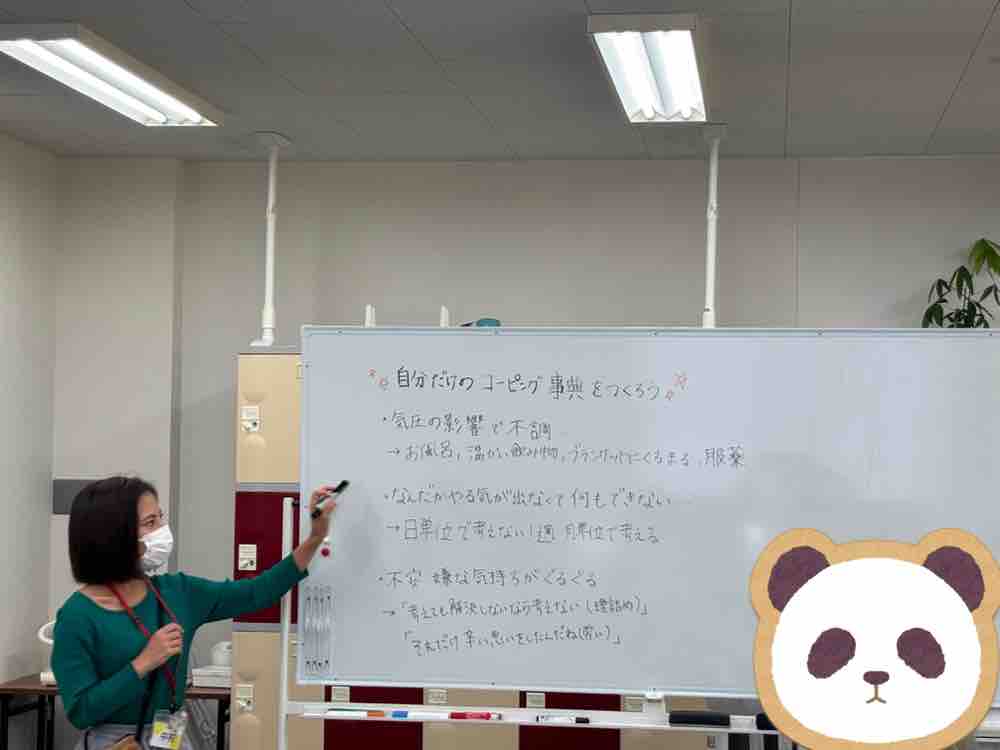 自分だけのコーピング事典をつくろう
・気圧の影響で不調
→お風呂,温かい飲み物,ブランケットにくるまる,服薬
・なんだかやる気が出なくて何もできない
→日単位で考えない!週 月単位で考える
・不安 嫌な気持ちがぐるぐる
→「考えても解決しないなら考えない(理詰め)」
「それだけ辛い思いをしたんだね(労い)」